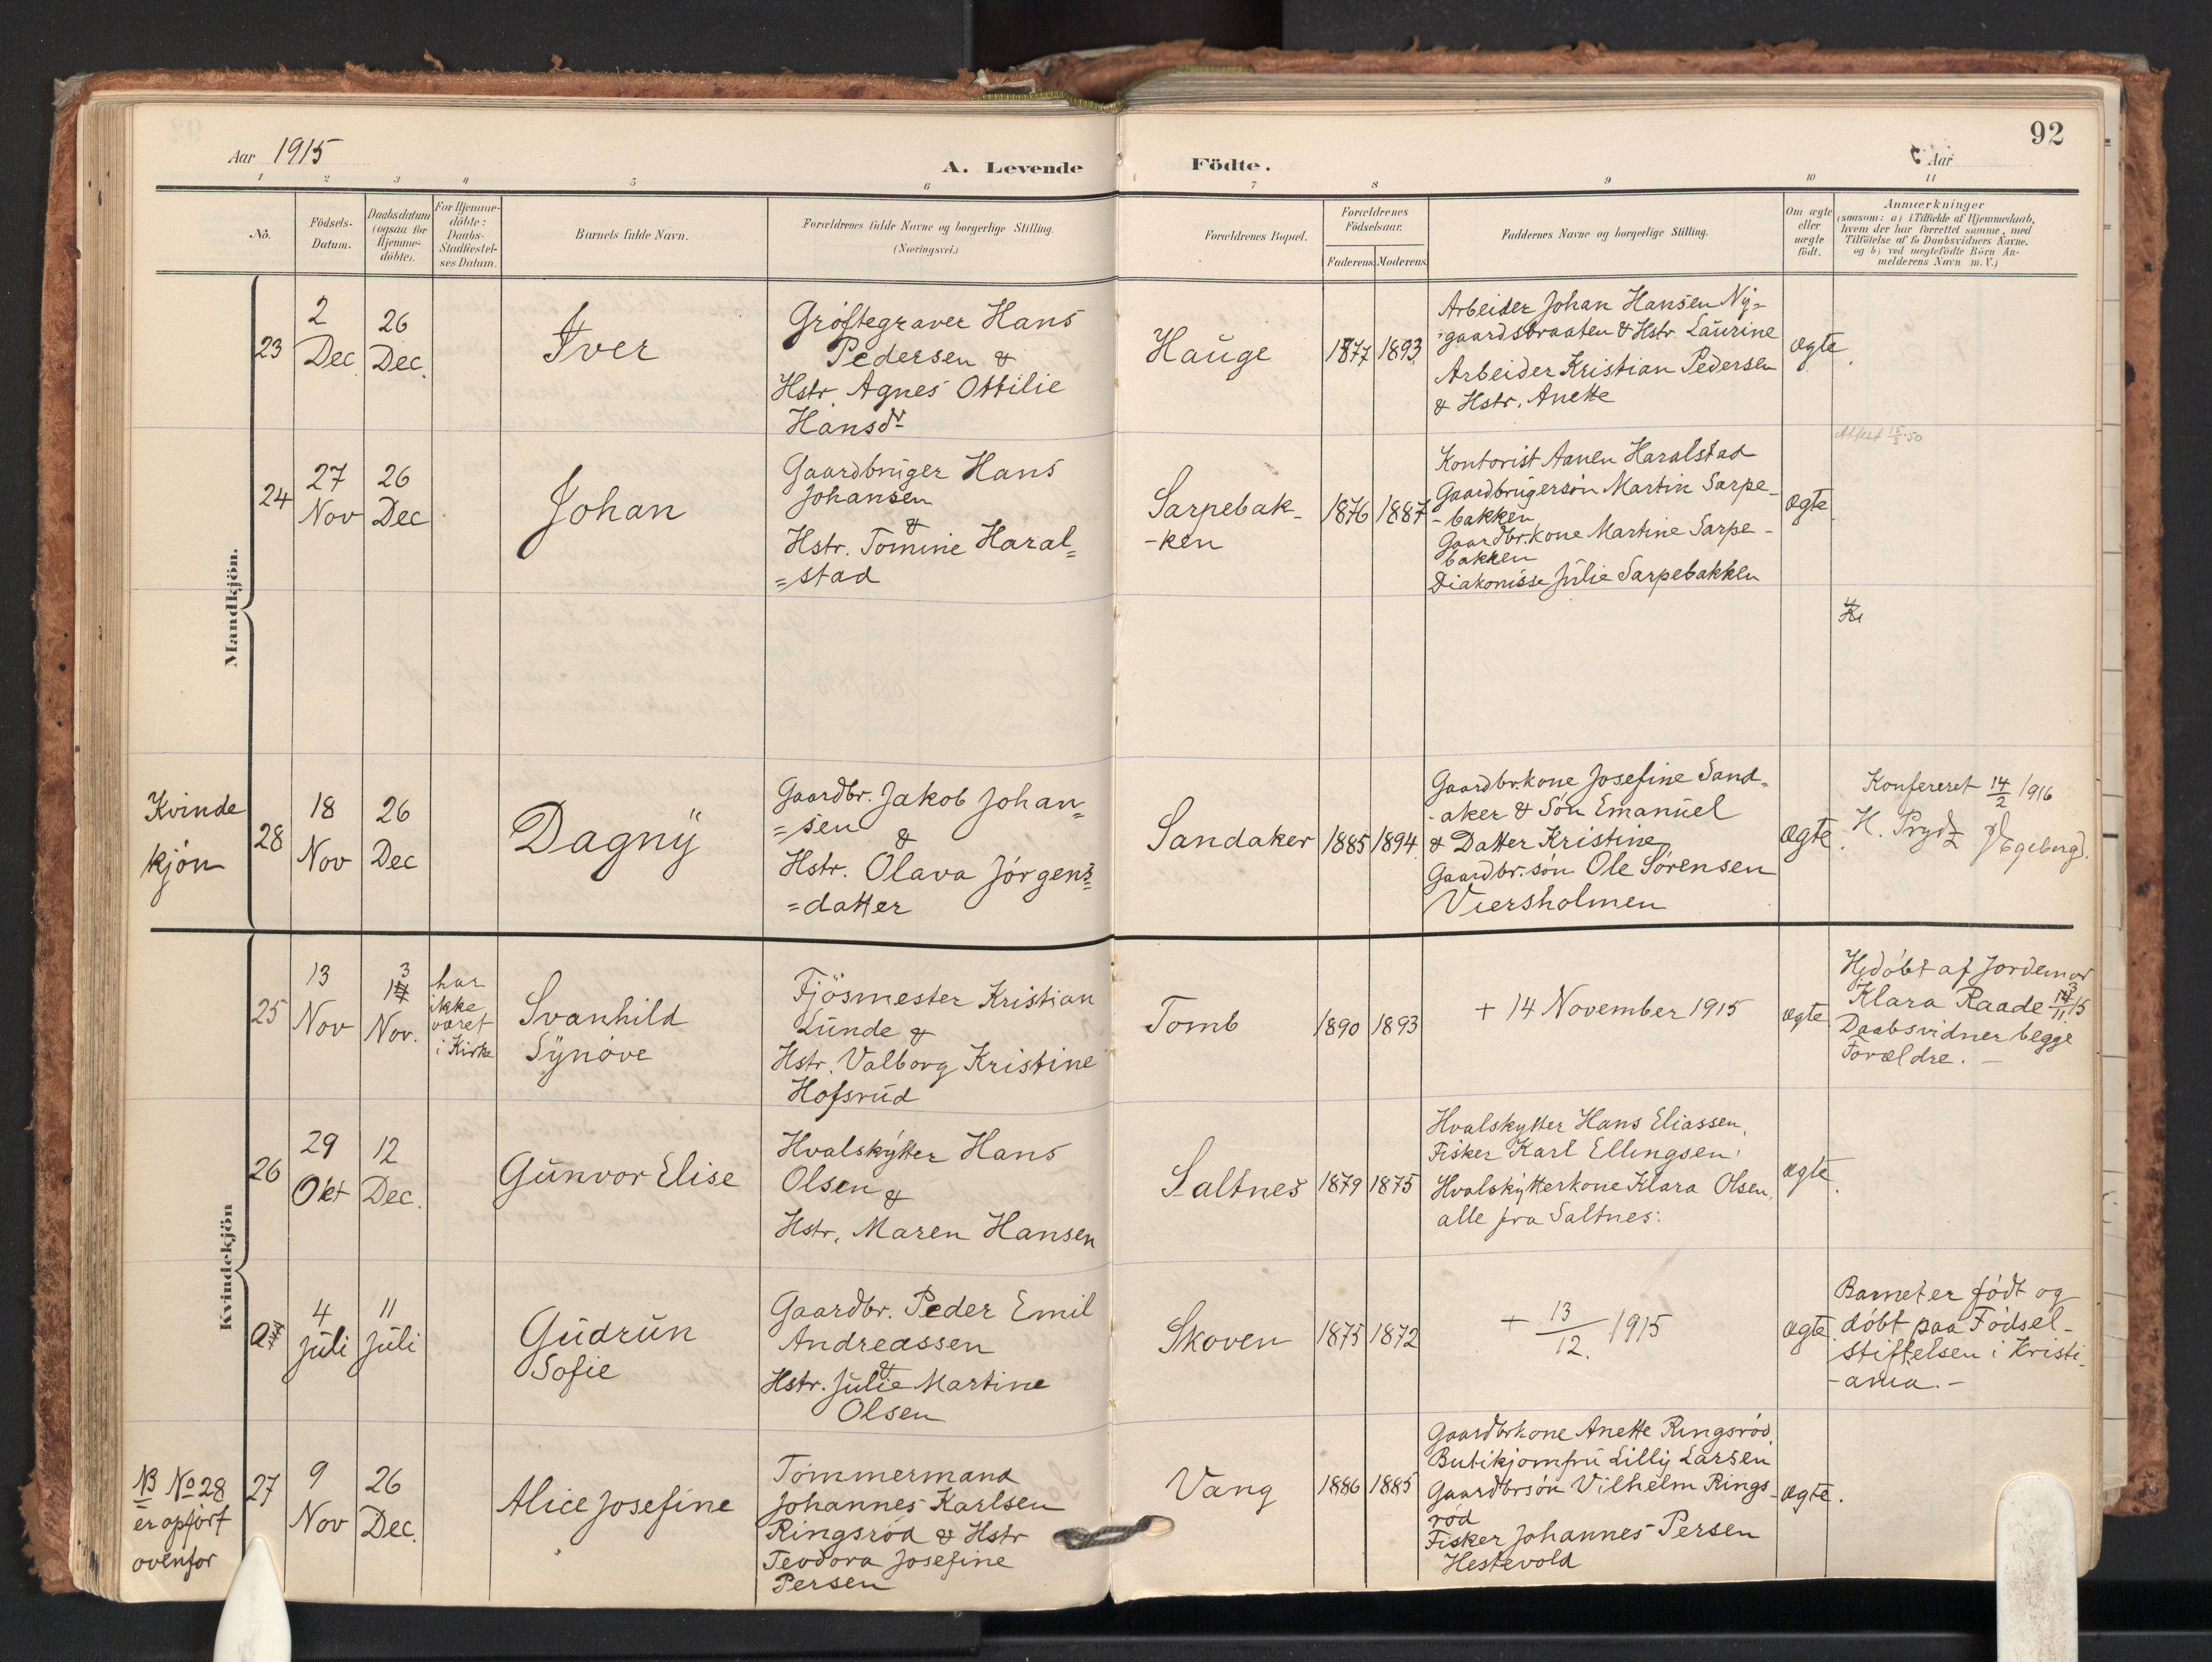 92
Aar 1915
A. Levende Födte.
Aar
1 2 3 4 5 6 7 8 9 10 11
Nö.
Födsels-Datum.
Daabsdatum (ogsaa for Hjemme-döbte).
For Hjemme-döbte: Daabs-Stadfæstel-ses Datum.
Barnets fulde Navn.
Forældrenes fulde Navne og borgerlige Stilling.
(Næringsvei.)
Forældrenes Bopæl.
Forældrenes Födselsaar.
Faderens. Moderens.
Faddernes Navne og borgerlige Stilling.
Om ægte eller uægte födt.
Anmærkninger
(saasom: a) i Tilfælde af Hjemmedaab,
hvem der har forrettet samme, med
Tilföielse af to Daabsvidners Navne,
og b) ved uægtefödte Börn An-
melderens Navn m. V.)
Mandkjön.
23
2 Dec
26 Dec.
Iver
Grøftegraver Hans
Pedersen &
Hstr. Agnes Ottilie
Hansdr
Hauge
1877 1893
Arbeider Johan Hansen Ny=
=gaardsbraaten & Hstr. Laurine
Arbeider Kristian Pedersen
& Hstr. Anette
ægte.
24
27 Nov
26 Dec
Johan
Gaardbruger Hans
Johansen
&
Hstr. Tomine Haral=
=stad
Sarpebak-
-ken
1876 1887
Kontorist Aanen Haralstad
Gaardbrugersøn Martin Sarpe-
-bakken
Gaardbrkone Martine Sarpe-
bakken
Diakonisse Julie Sarpebakken
ægte.
Attest 15/3-50
Kvinde
kjön
28
18 Nov
26 Dec
Dagny
Gaardbr. Jakob Johan=
=sen
&
Hstr. Olava Jørgens=
=datter
Sandaker
1885 1894
Gaardbrkone Josefine Sand-
-aker & Søn Emanuel
& Datter Kristine
Gaardbr.søn Ole Sørensen
Viersholmen
ægte.
Konfereret 14/2 1916
H. Prydz J Egeberg.
Kvindekjön
25
13 Nov
13 Nov.
har
ikke
været
i Kirke
Svanhild
Synøve
Fjösmester Kristian
Lunde &
Hstr. Valborg Kristine
Hofsrud
Tomb
1890 1893
+ 14 November 1915
ægte.
Hjdøbt af Jordemor
Klara Raade 13/11 15
Daabsvidner begge
Forældre. -
26
29 Okt
12 Dec.
Gunvor Elise
Hvalskytter Hans
Olsen &
Hstr, Maren Hansen
Saltnes
1879 1875
Hvalskytter Hans Eliassen,
Fisker Karl Ellingsen,
Hvalskytterkone Klara Olsen,
alle fra Saltnes.
ægte.
a
4 Juli
11 Juli
Gudrun
Sofie
Gaardbr. Peder Emil
Andreassen
&
Hstr. Julie Martine
Olsen
Skoven
1875 1872
+ 13/12. 1915
ægte.
Barnet er født og
døbt paa Fødsel-
stiftelsen i Kristi-
-ania. -
NB No 28
er opført
ovenfor
27
9 Nov
26 Dec.
Alice Josefine
Tømmermand
Johannes Karlsen
Ringsrød & Hstr
Teodora Josefine
Persen
Vang
1886 1885
Gaardbrkone Anette Ringsrød
Butikjomfru Lilly Larsen
Gaardbrsøn Vilhelm Rings-
rød
Fisker Johannes Persen
Hestevold
ægte.